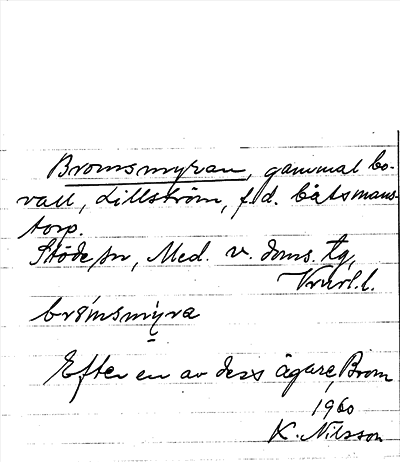 Bromsmyran, gammal bo-
vall, Lillström, f.d. båtsmans-
torp.
Stöde sn, Med. v. doms. tg,
l.
bromsmyra
Efter en av dess ägare, Brom
1960
K. Nilsson